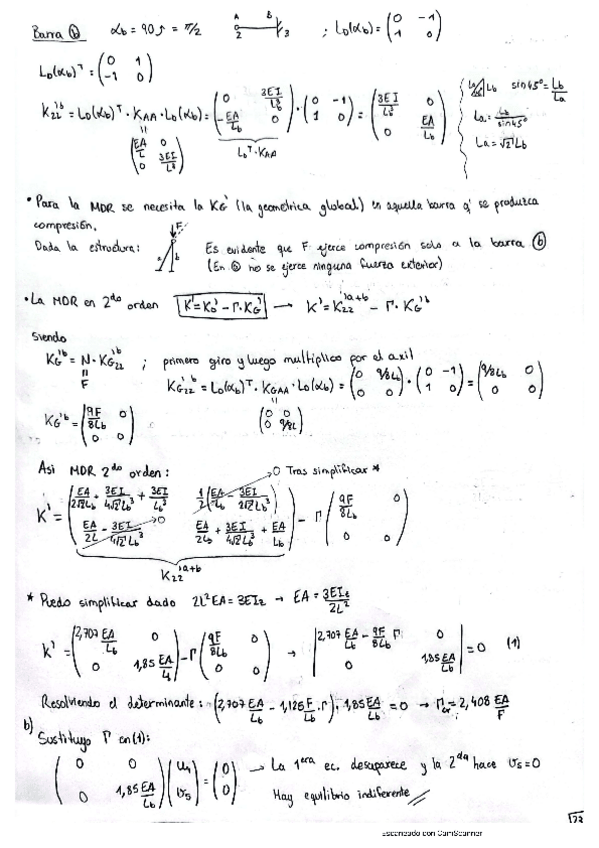 Barra ⓑ αb = 90↺ = π/2 A B 2 3 ; LD(αb) = (0 -1; 1 0)
LD(αb)ᵀ = (0 1; -1 0)
K22'ᵇ = LD(αb)ᵀ · KAA · LD(αb) = (0 3EI/Lb³; -EA/Lb 0) · (0 -1; 1 0) = (3EI/Lb³ 0; 0 EA/Lb)
(EA/L 0; 0 3EI/L³) LDᵀ·KAA
La Lb sin45º = Lb/La
La = Lb/sin45º
La = √2 Lb
• Para la MDR se necesita la KG' (la geométrica global) en aquella barra q' se produzca
compresión.
Dada la estructura: F a b Es evidente que F ejerce compresión solo a la barra ⓑ
(En ⓐ no se ejerce ninguna fuerza exterior)
• La MDR en 2do orden K' = K0' - Γ·KG' → K' = K22'ᵃ⁺ᵇ - Γ·KG'ᵇ
Siendo
KG'ᵇ = N·KG22'ᵇ ; primero giro y luego multiplico por el axil
F
KG22'ᵇ = LD(αb)ᵀ · KGAA · LD(αb) = (0 9/8Lb; 0 0) · (0 -1; 1 0) = (9/8Lb 0; 0 0)
KG'ᵇ = (9F/8Lb 0; 0 0) (0 0; 0 9/8L)
Así MDR 2do orden: 0 Tras simplificar *
K' = (EA/2√2Lb + 3EI/4√2Lb³ + 3EI/Lb³ 1/2(EA/Lb - 3EI/2√2Lb³); EA/2L - 3EI/4√2Lb³ 0 EA/2Lb + 3EI/4√2Lb³ + EA/Lb) - Γ (9F/8Lb 0; 0 0)
K22'ᵃ⁺ᵇ
* Puedo simplificar dado 2L²EA = 3EIz → EA = 3EIz/2L²
K' = (2,707 EA/Lb 0; 0 1,85 EA/L) - Γ (9F/8Lb 0; 0 0) → |2,707 EA/Lb - 9F/8Lb Γ 0; 0 1,85 EA/Lb| = 0 (1)
Resolviendo el determinante: (2,707 EA/Lb - 1,126 F/Lb · Γ) · 1,85 EA/Lb = 0 → Γcr = 2,408 EA/F
b)
Sustituyo Γ en (1):
(0 0; 0 1,85 EA/Lb) (u5; v5) = (0; 0) → La 1era ec. desaparece y la 2da hace v5 = 0
Hay equilibrio indiferente
Escaneado con CamScanner